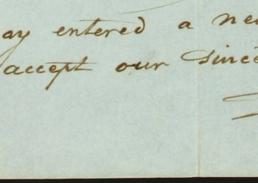 ay entered a ne
accept our since